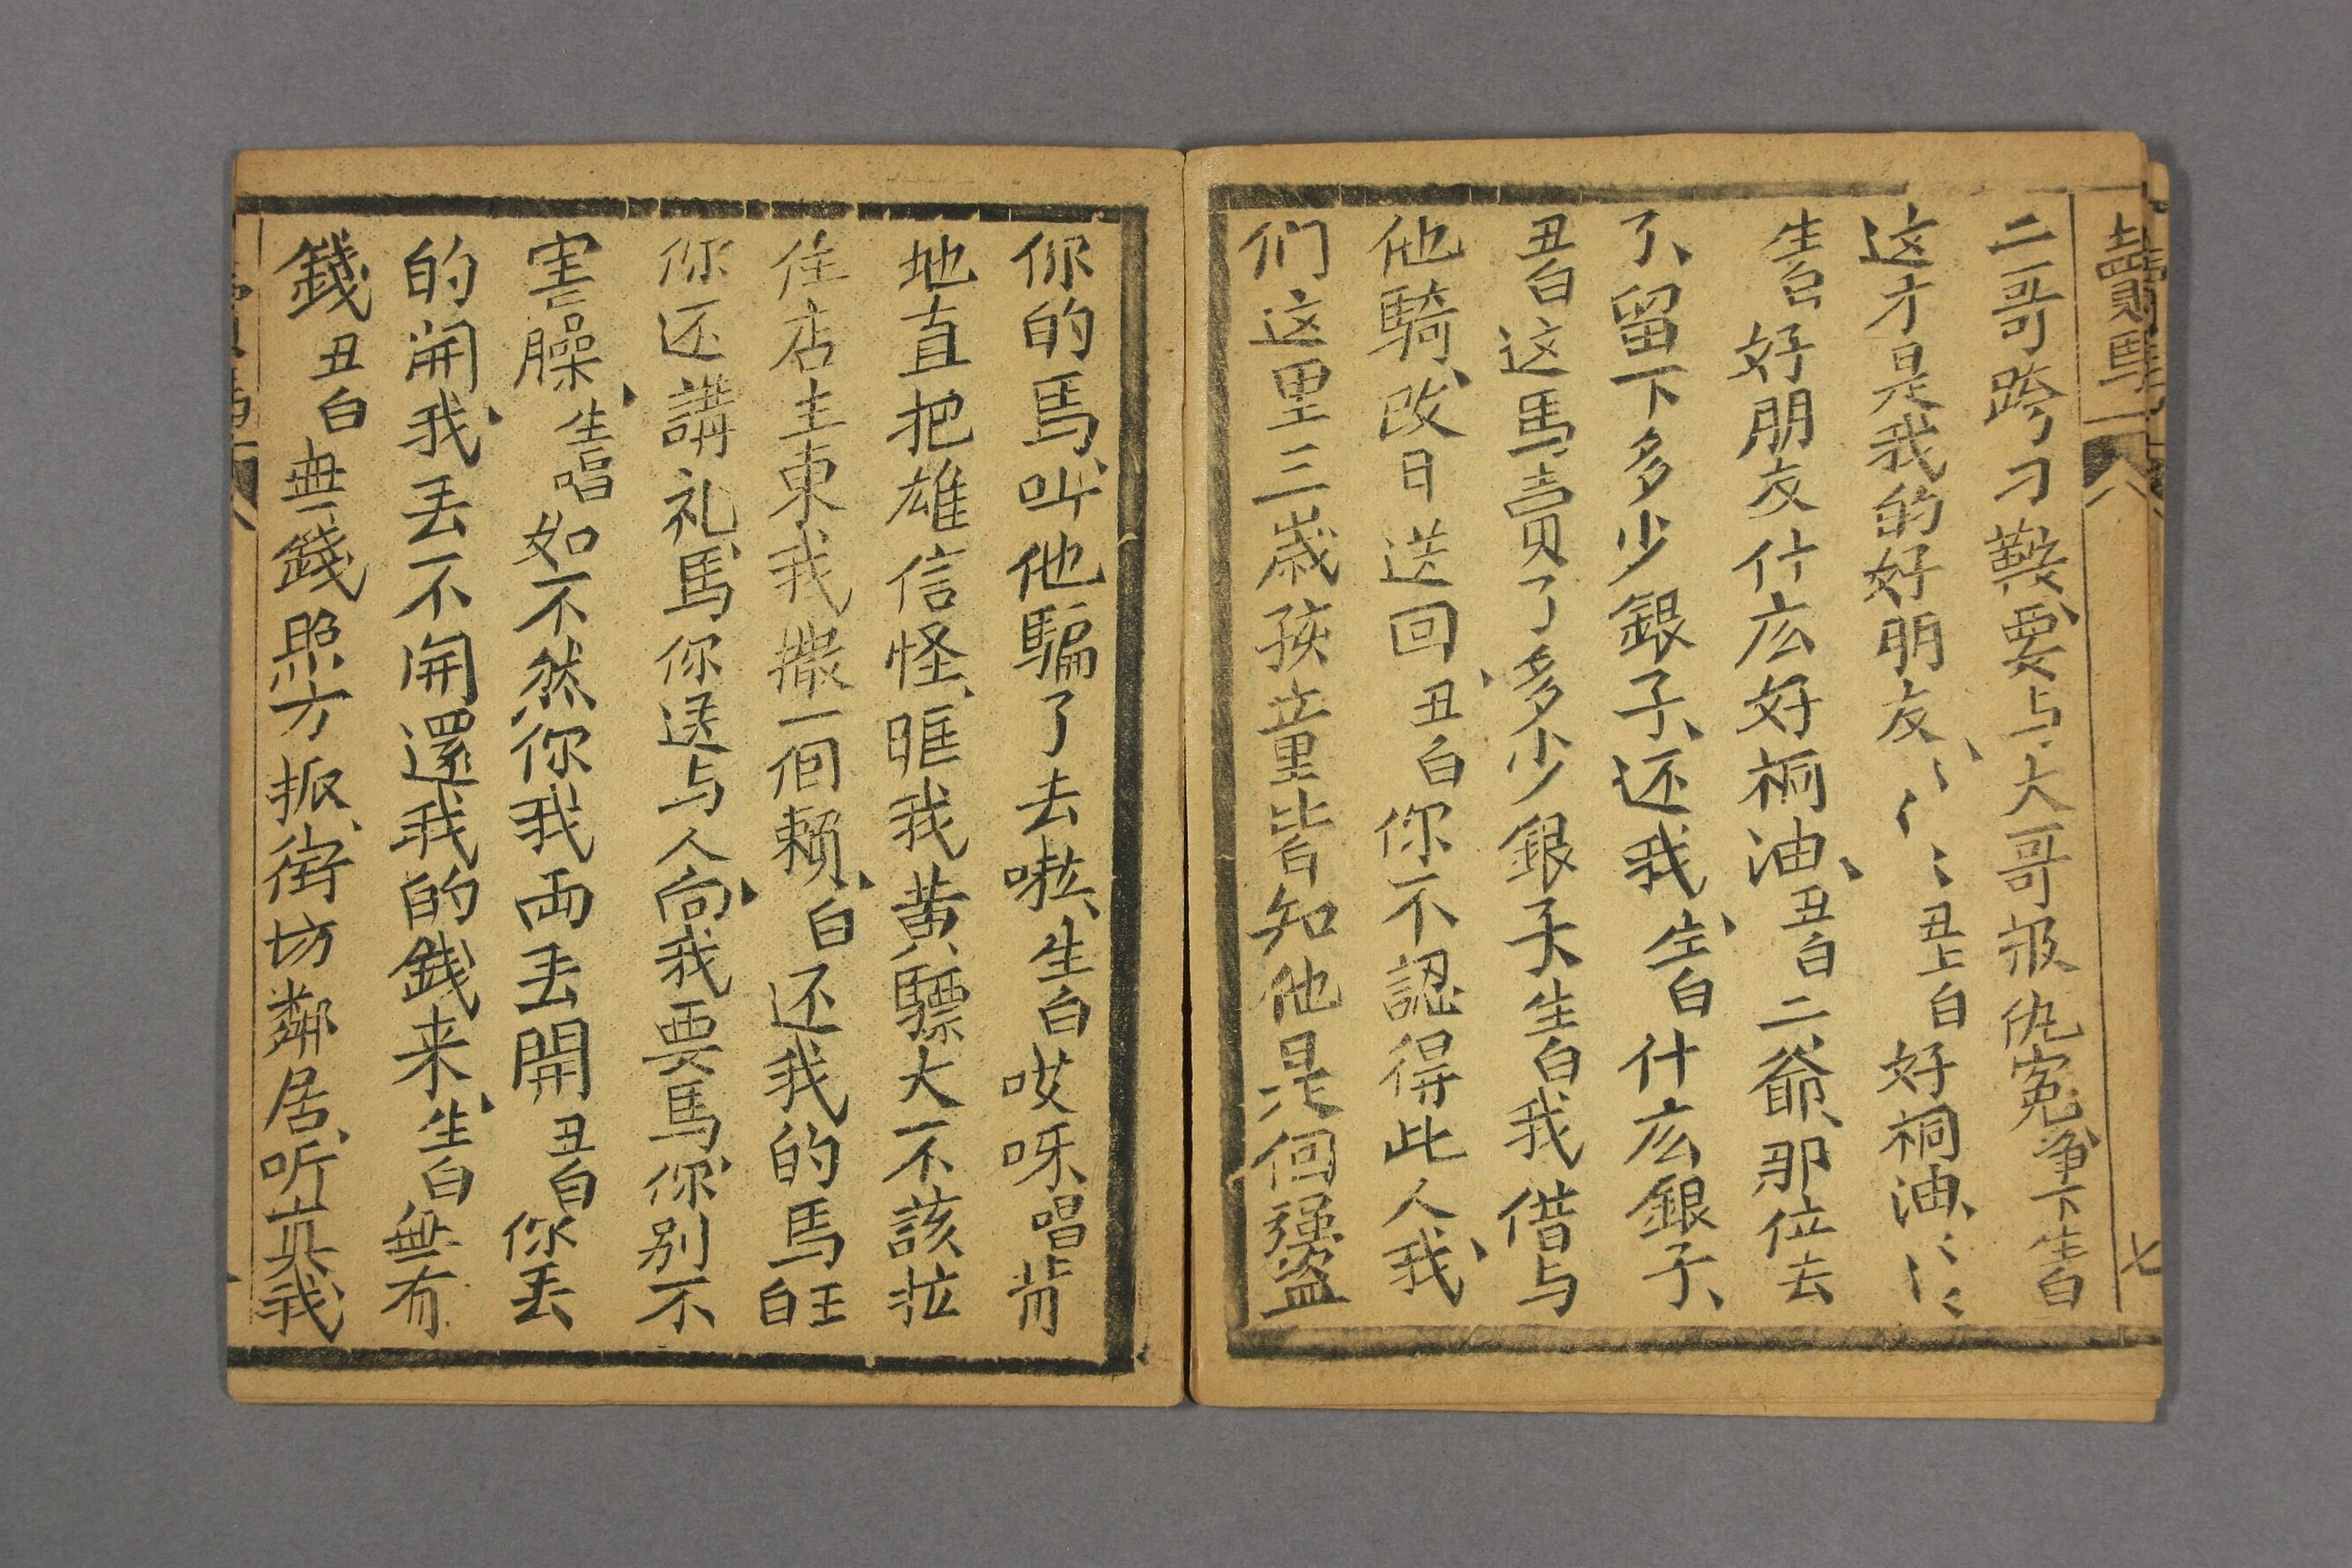 賣馬 七
二哥跨刁鞍要与大哥报仇寃爭下生白
这才是我的好朋友、〻〻〻丑上白好祠油、〻〻〻
生白好朋友什庅好祠油、丑白二爺、那位去
了、留下多少銀子、还我、生白什庅銀子、
丑白这馬賣了多少銀子生白我借与
他騎、改日送回、丑白你不認得此人、我
们这里三歳孩童皆知他是個强盗
你的馬、叫他騙了去啦、生白哎呀唱背
地直把雄信怪、誆我黄驃大不該拉
住店主東我撒一個賴、白还我的馬白王
你还講礼、馬、你送与人、向我要馬、你别不
害臊、生唱如不然你我両丟開丑白你丟
的開、我丟不開還我的錢来、生白無有
錢丑白無錢照方抓、街坊鄰居、听真我